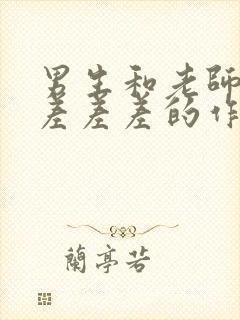 男生和老師
差差差的作
蘭亭若